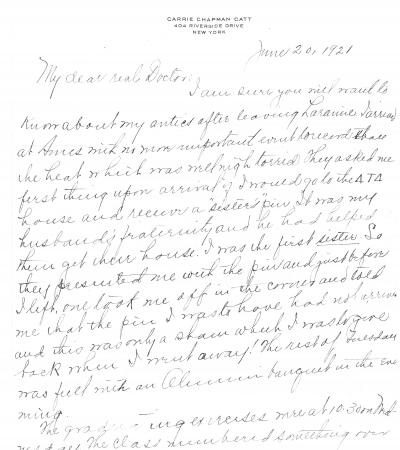 CARRIE CHAPMAN CATT
404 RIVERSIDE DRIVE
NEW YORK
June 20, 1921
My dear real Doctor:
I am sure you will want to
know about my antics after leaving Laramie. I arrived
at Ames with no more important event to record than
the heat which was well nigh torrid. They asked me
first thing upon arrival if I would go to the ΔTΔ
house and receive a "sister's pin". It was my
husband's fraternity and he had helped
them get their house. I was the first sister. So
they presented me with the pin and just before
I left, one took me off in the corner and told
me that the pin I was to have had not arrived
and this was only a sham which I was to give
back when I went away! The rest of Tuesday
was full with an Alumni banquet in the eve
ning.
The graduating exercises were at 10:30 on Wed
nesday. The class numbered something over